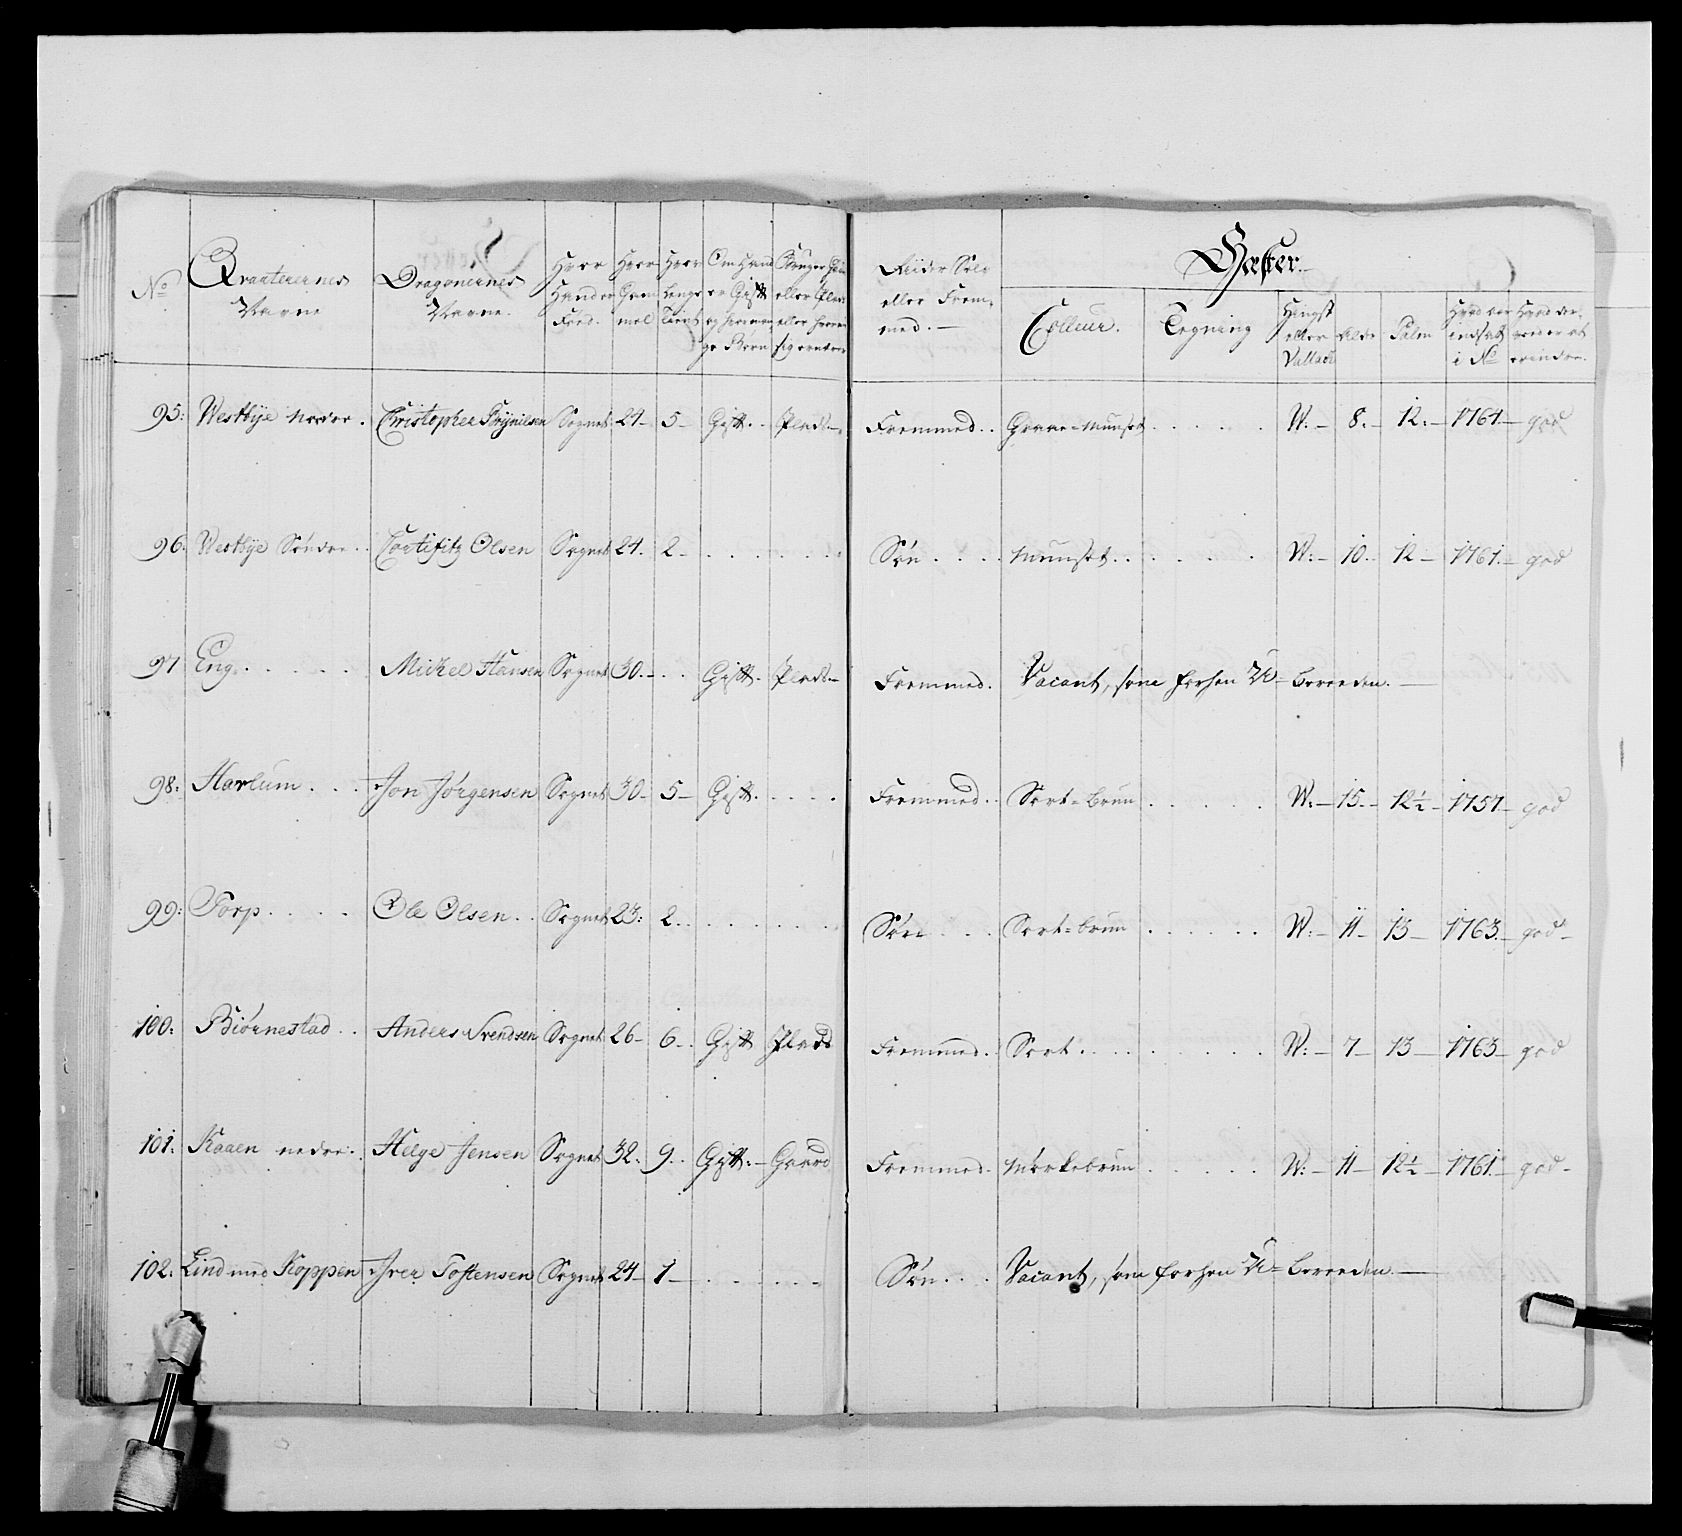 No
Qvarterernes
Navne
Dragonernes
Navne.
Hvor
Hand er
Fød.
Hvor
Gam̅
mel
Hvor
Længe
Tient
Om Hand
er Gift
og hvorman
ge Børn
Bruger Gaard
eller Plads
eller hvoraf
sig ernærer
Riider Selv
eller Frem¬
med. —
Hæster.
Colleur.
Tegning
Hingst
eller
Vallach
Alder
Palm
Hvad aar
indsat
i No
Hvad der
ved er at
erindre.
95: Westbye Nordre . Christopher Brynilsen Sognet 24– 5– Gift . . Plads–. Fremmed. . Graae=Munset . . . . . W: – 8. – 12. – 1764. – god
96: Westbye Søndre . . Fortifitz Olsen Sognet 24. 2– . . . . . . Søn . . . . Munset . . . . . . W: – 10. – 12 – 1761. – god
97 Eng . . . . . . Mickel Hansen Sognet 30. – . . Gift . Plads – Fremmed. Vacant, som forhen U= Bereeden. —
98: Harlum . . . Jon Jørgensen Sognet 30– 5– Gift . . . . . Fremmed. . Sort=brun . . . . . W: – 15. – 12½ – 1757 – god
99: Torp . . . . Ole Olsen . . Sognet 23: 2. . . . . . . . Søn . . . Sort=brun . . . . . . W: – 11 – 13 – 1763. – god –
100: Biørnestad . . Anders Svendsen Sognet 26– 6– . Gift Plads Fremmed. . Sort . . . . . . . . W: – 7 – 13 – 1763 – god
101: Kaaen nedre . Helge Jensen Sognet 32. 9. . Gift . – Gaard Fremmed. Mørkebrun . . . . . W: – 11 – 12½ – 1761 – god –
102: Lind med Koppen Iver Tostensen Sognet 24– 1 – . . . . . Søn . . . Vacant, som forhen U= Bereeden. —